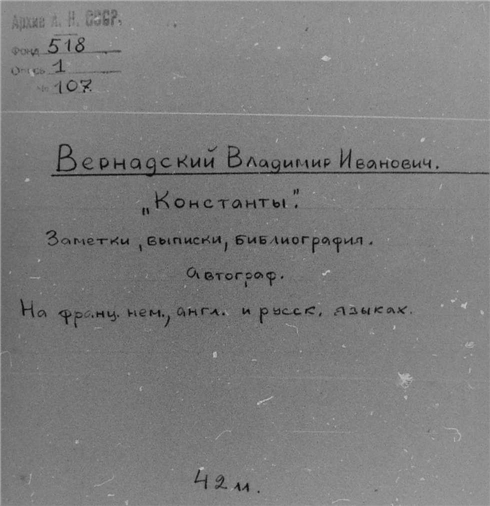 Архив А. Н. СССР.
Фонд 518
Опись 1
№ 107
Вернадский Владимир Иванович.
„Константы“.
Заметки, выписки, библиография.
Автограф.
На франц. нем., англ. и русск. языках.
42 л.